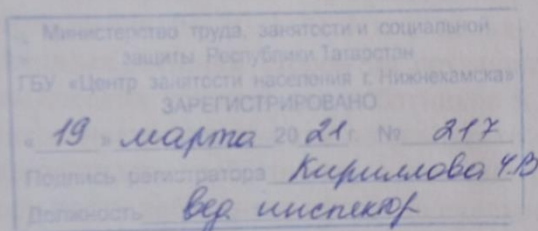 Министерство труда, занятости и социальной
защиты Республики Татарстан
ГБУ «Центр занятости населения г. Нижнекамска»
ЗАРЕГИСТРИРОВАНО
« 19 » марта 20 21 г. № 217
Подпись регистратора Кириллова Ч.В
Должность вед. инспектор